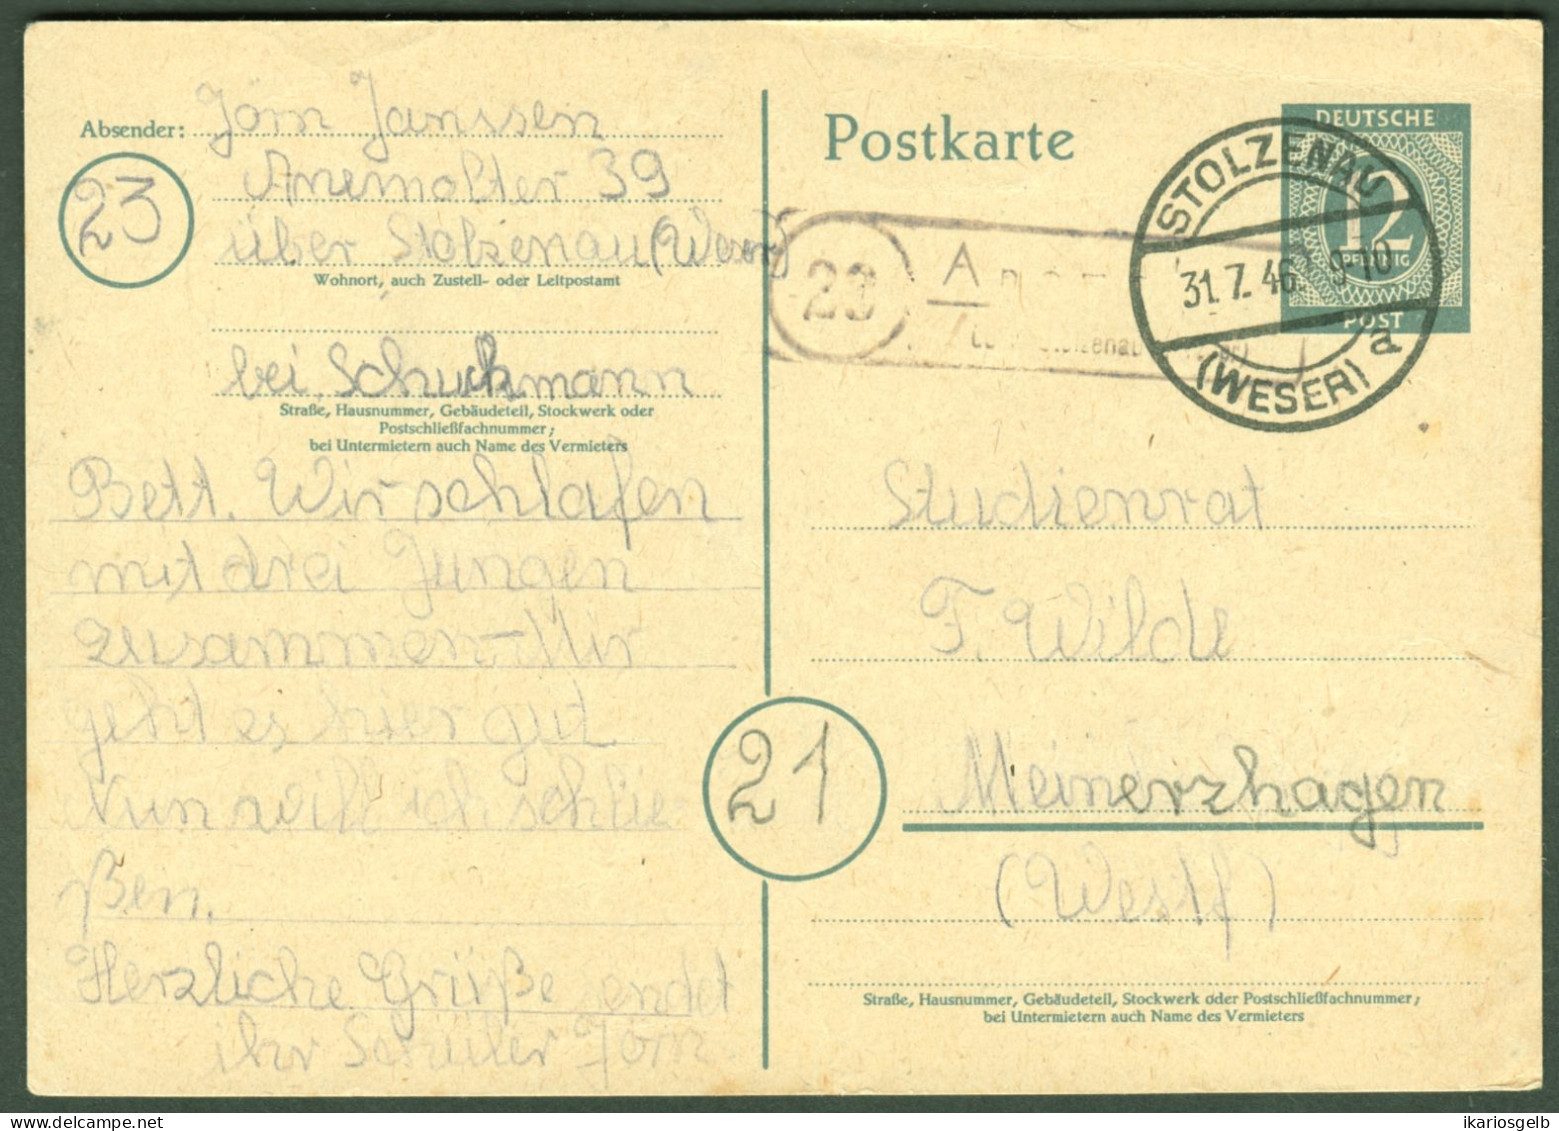 Absender: Jörn Janssen
23
Anemolter 39
über Stolzenau (Weser)
Wohnort, auch Zustell- oder Leitpostamt
bei Schuckmann
Straße, Hausnummer, Gebäudeteil, Stockwerk oder
Postschließfachnummer;
bei Untermietern auch Name des Vermieters
Bett. Wir schlafen
mit drei Jungen
zusammen – Mir
geht es hier gut
Nun will ich schlie-
ßen.
Herzliche Grüße sendet
ihr Schüler Jörn.
Postkarte
DEUTSCHE
12
PFENNIG
POST
STOLZENAU
31.7.46 9-10
(WESER) a
23
Studienrat
F. Wilde
21
Meinerzhagen
(Westf)
Straße, Hausnummer, Gebäudeteil, Stockwerk oder Postschließfachnummer;
bei Untermietern auch Name des Vermieters
ikariosgelb